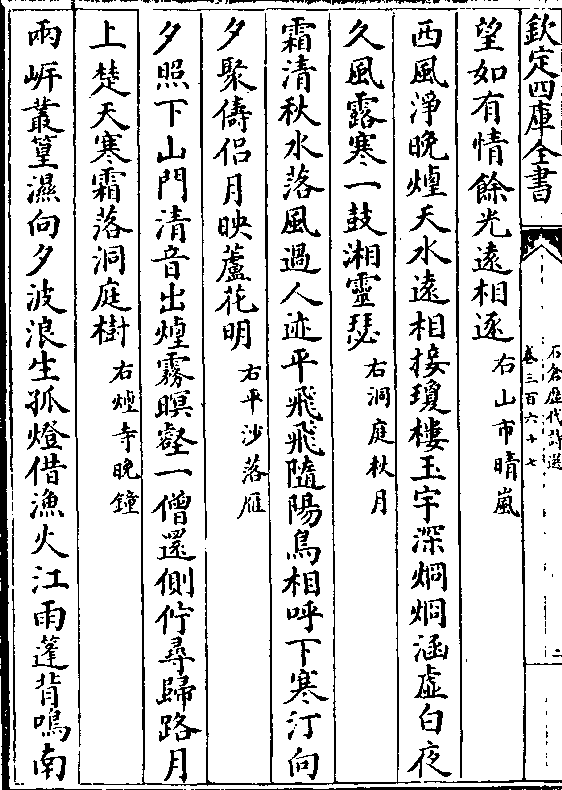 欽定四庫全書
石倉歷代詩選
卷三百六十七
二
望如有情餘光遠相逐右山市晴嵐
西風淨晚煙天水遠相接瓊樓玉宇深烱烱涵虛白夜
久風露寒一鼓湘靈瑟右洞庭秋月
霜清秋水落風過人迹平飛飛隨陽鳥相呼下寒汀向
夕聚儔侶月映蘆花明右平沙落雁
夕照下山門清音出煙霧暝壑一僧還側佇尋歸路月
上楚天寒霜落洞庭樹右煙寺晚鐘
兩岸叢篁濕向夕波浪生孤燈借漁火江雨蓬背鳴南